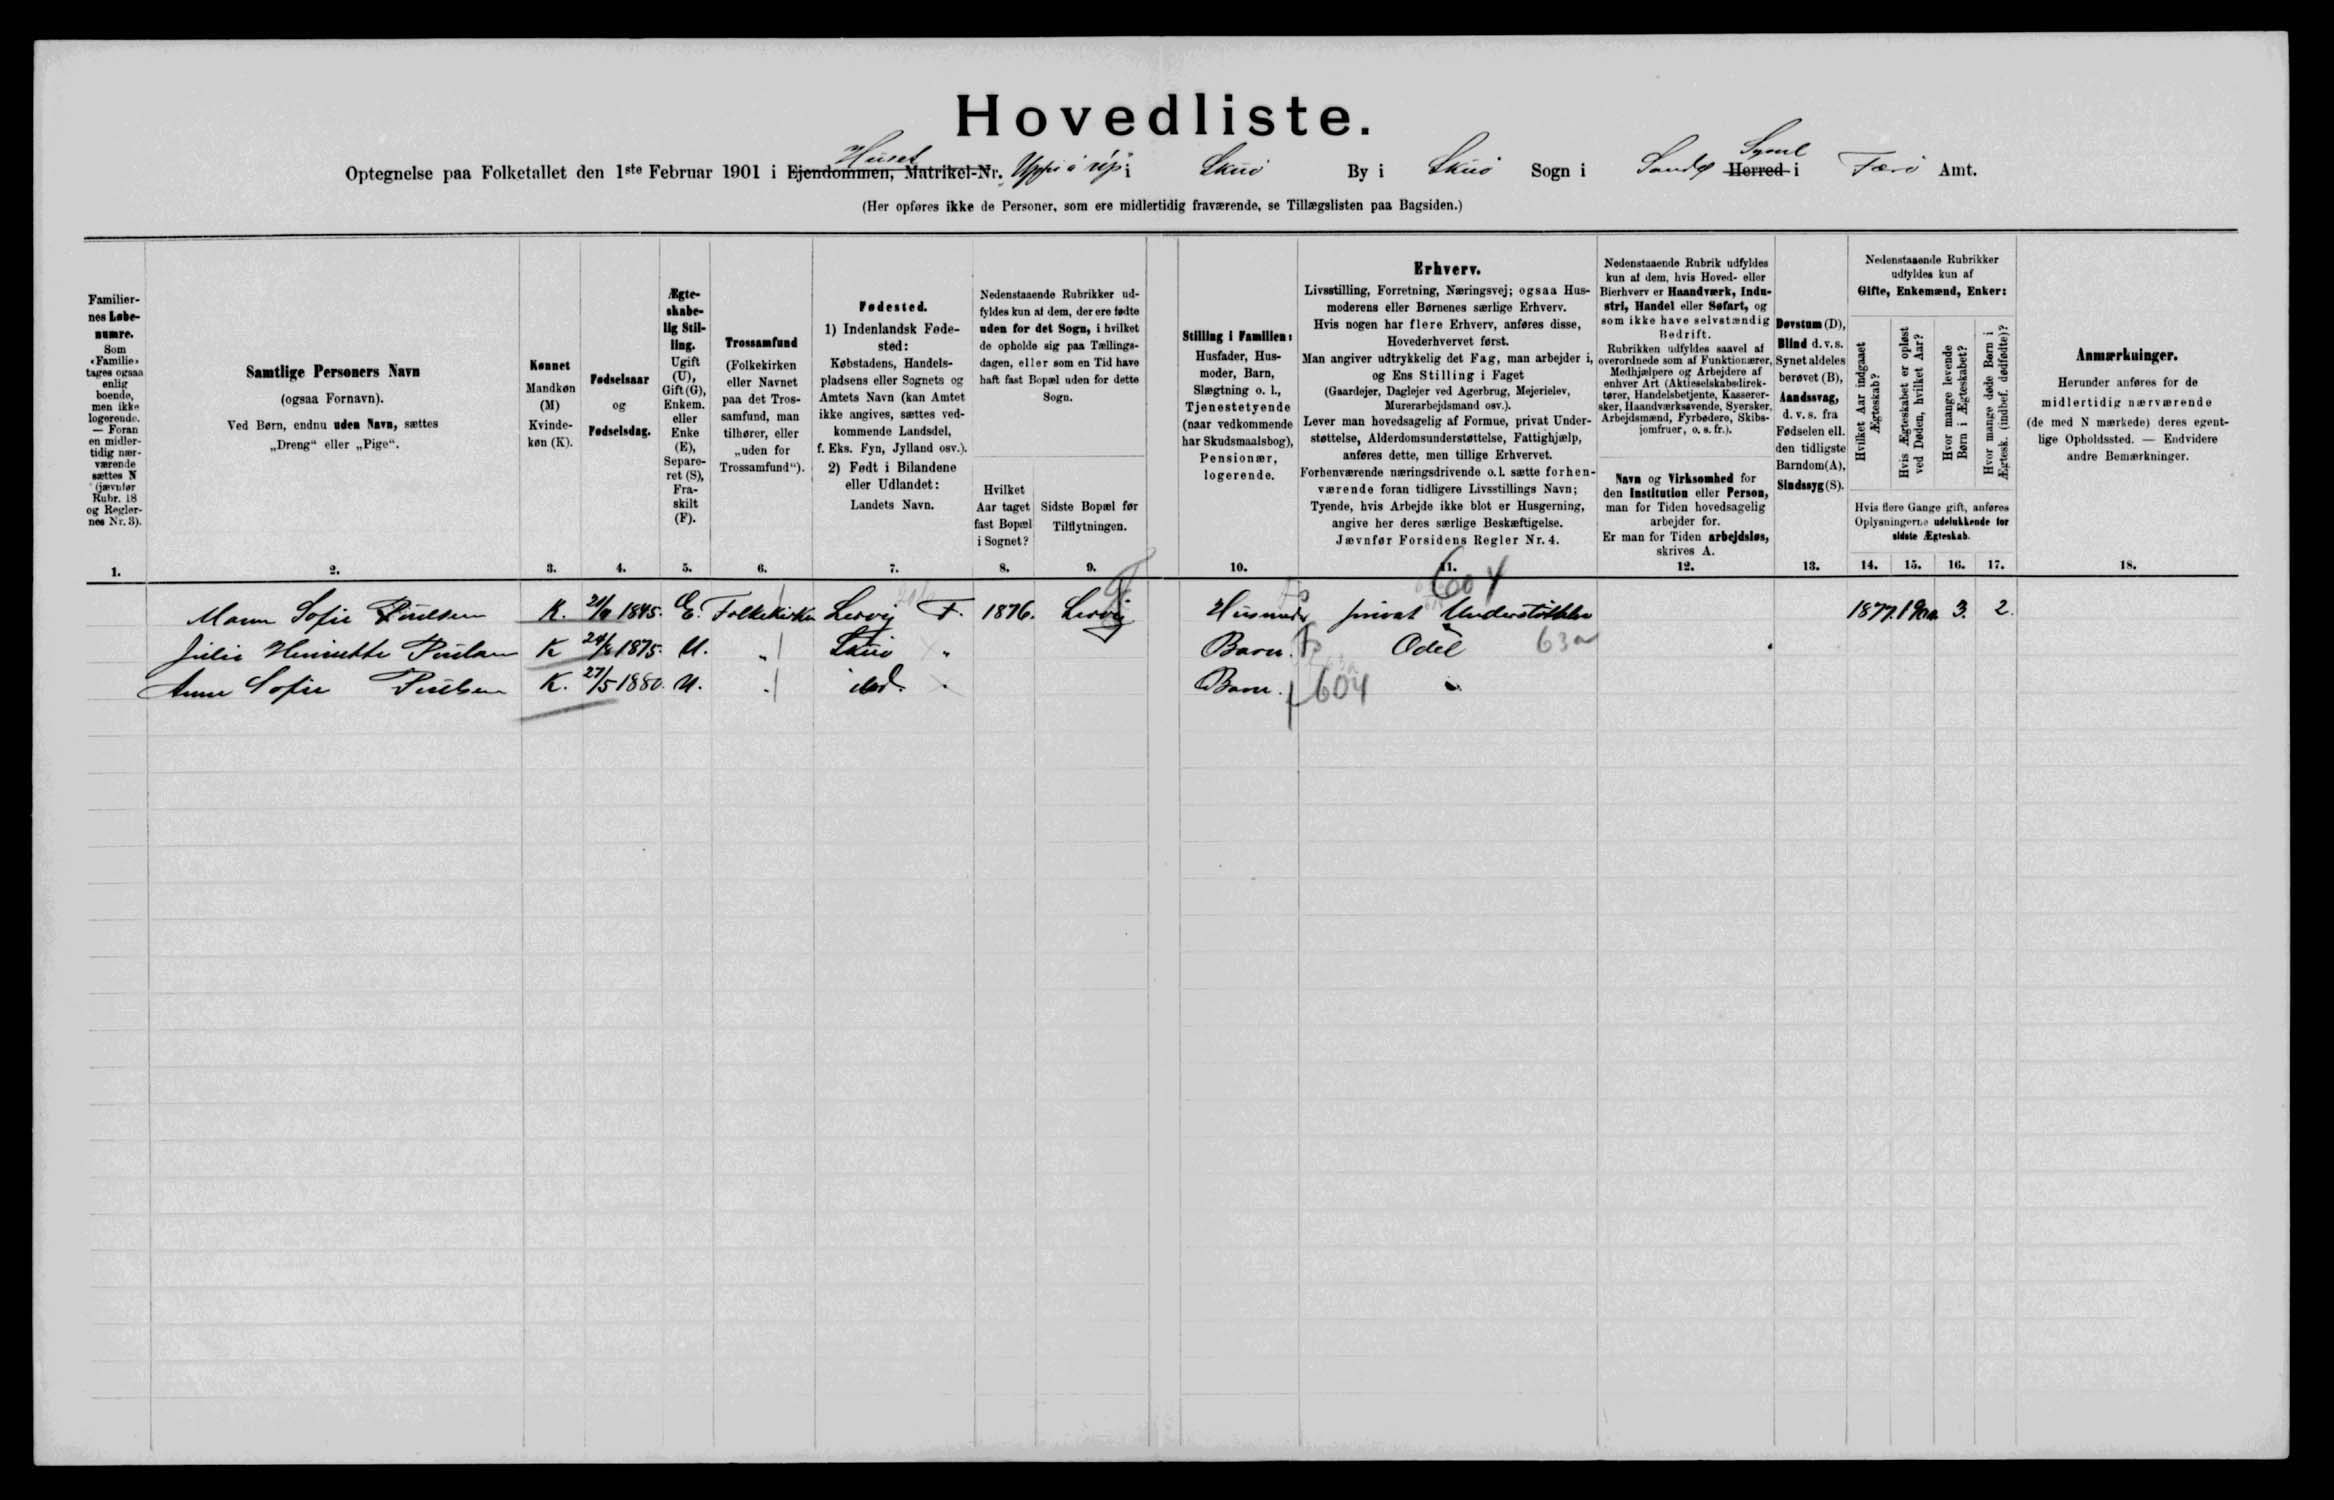 Hovedliste.
Huset Syssel
Optegnelse paa Folketallet den 1ste Februar 1901 i Ejendommen, Matrikel-Nr. i Skuö By i Skuö Sogn i Sandö Herred i Færö Amt.
(Her opføres ikke de Personer, som ere midlertidig fraværende, se Tillægslisten paa Bagsiden.)
Familier-
nes Løbe-
numre.
Som
«Familie»
tages ogsaa
enlig
boende,
men ikke
logerende.
— Foran
en midler-
tidig nær-
værende
sættes N
(jævnfør
Rubr. 18
og Regler-
nes Nr. 3).
1.
Samtlige Personers Navn
(ogsaa Fornavn).
Ved Børn, endnu uden Navn, sættes
„Dreng“ eller „Pige“.
2.
Kønnet
Mandkøn
(M)
Kvinde-
køn (K).
3.
Fødselsaar
og
Fødselsdag.
4.
Ægte-
skabe-
lig Stil-
ling.
Ugift
(U),
Gift (G),
Enkem.
eller
Enke
(E),
Separe-
ret (S),
Fra-
skilt
(F).
5.
Trossamfund
(Folkekirken
eller Navnet
paa det Tros-
samfund, man
tilhører, eller
„uden for
Trossamfund“).
6.
Fødested.
1) Indenlandsk Føde-
sted:
Købstadens, Handels-
pladsens eller Sognets og
Amtets Navn (kan Amtet
ikke angives, sættes ved-
kommende Landsdel,
f. Eks. Fyn, Jylland osv.).
2) Født i Bilandene
eller Udlandet:
Landets Navn.
7.
Nedenstaaende Rubrikker ud-
fyldes kun af dem, der ere fødte
uden for det Sogn, i hvilket
de opholde sig paa Tællings-
dagen, eller som en Tid have
haft fast Bopæl uden for dette
Sogn.
Hvilket
Aar taget
fast Bopæl
i Sognet?
8.
Sidste Bopæl før
Tilflytningen.
9.
Stilling i Familien:
Husfader, Hus-
moder, Barn,
Slægtning o. l.,
Tjenestetyende
(naar vedkommende
har Skudsmaalsbog),
Pensionær,
logerende.
10.
Erhverv.
Livsstilling, Forretning, Næringsvej; ogsaa Hus-
moderens eller Børnenes særlige Erhverv.
Hvis nogen har flere Erhverv, anføres disse,
Hovederhvervet først.
Man angiver udtrykkelig det Fag, man arbejder i,
og Ens Stilling i Faget
(Gaardejer, Daglejer ved Agerbrug, Mejerielev,
Murerarbejdsmand osv.).
Lever man hovedsagelig af Formue, privat Under-
støttelse, Alderdomsunderstøttelse, Fattighjælp,
anføres dette, men tillige Erhvervet.
Forhenværende næringsdrivende o. l. sætte forhen-
værende foran tidligere Livsstillings Navn;
Tyende, hvis Arbejde ikke blot er Husgerning,
angive her deres særlige Beskæftigelse.
Jævnfør Forsidens Regler Nr. 4.
11.
Nedenstaaende Rubrik udfyldes
kun af dem, hvis Hoved- eller
Bierhverv er Haandværk, Indu-
stri, Handel eller Søfart, og
som ikke have selvstændig
Bedrift.
Rubrikken udfyldes saavel af
overordnede som af Funktionærer,
Medhjælpere og Arbejdere af
enhver Art (Aktieselskabsdirek-
tører, Handelsbetjente, Kasserer-
sker, Haandværkssvende, Syersker,
Arbejdsmænd, Fyrbødere, Skibs-
jomfruer, o. s. fr.).
Navn og Virksomhed for
den Institution eller Person,
man for Tiden hovedsagelig
arbejder for.
Er man for Tiden arbejdsløs,
skrives A.
12.
Døvstum (D),
Blind d. v. s.
Synet aldeles
berøvet (B),
Aandssvag,
d. v. s. fra
Fødselen ell.
den tidligste
Barndom (A),
Sindssyg (S).
13.
Nedenstaaende Rubrikker
udfyldes kun af
Gifte, Enkemænd, Enker:
Hvilket Aar indgaaet
Ægteskab?
Hvis Ægteskabet er opløst
ved Døden, hvilket Aar?
Hvor mange levende
Børn i Ægteskabet?
Hvor mange døde Børn i
Ægtesk. (indbef. dødfødte)?
Hvis flere Gange gift, anføres
Oplysningerne udelukkende for
sidste Ægteskab.
14. 15. 16. 17.
Anmærkninger.
Herunder anføres for de
midlertidig nærværende
(de med N mærkede) deres egent-
lige Opholdssted. — Endvidere
andre Bemærkninger.
18.
604
Sofie Poulsen K. 1845. E. Folkekirken Lervig F. 1876. Lervig Husmoder privat Understöttelse 3. 2.
Henriette Poulsen K 1875. U. „ Skuö „ Barn. Odel 63a
Anna Sofie Poulsen K. 27/5 1880. U. „ ibid. „ Barn. 604 „